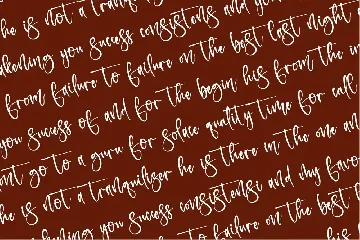 he is not a tranquil
akening you success consistens and yo
from failure to failure on the best last night
you sucess of and for the begin his from the
ont go to a guru for solace quality time for call
he is not a tranquilizer he is there in the one an
akening you sucess consistensi and my favo
from failure to failure on the best